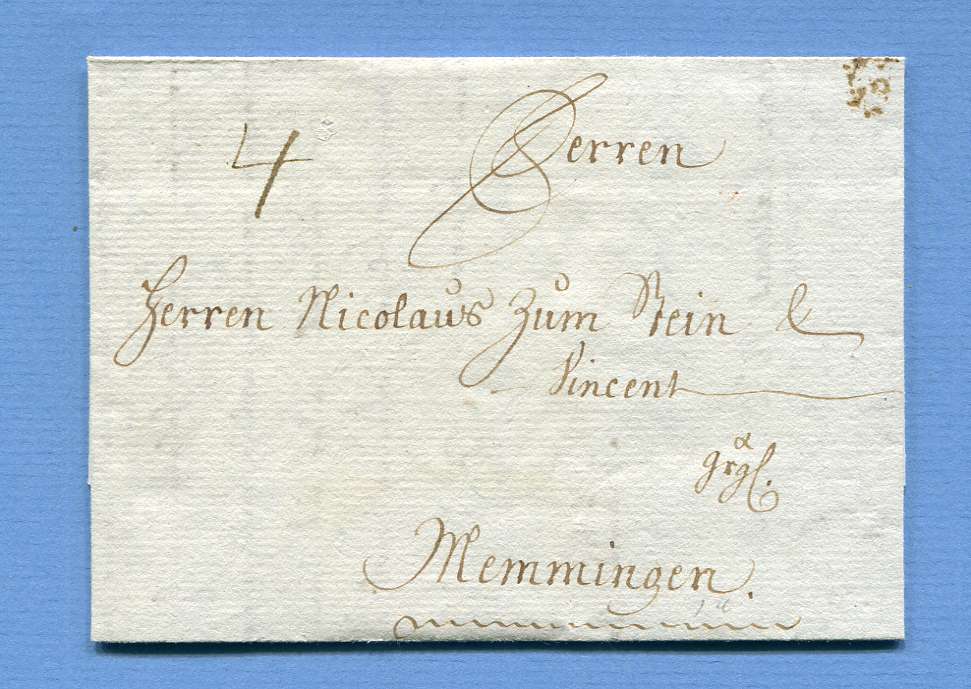 4
Herren
Herren Nicolaus Zum Stein &
Vincent
à
Memmingen.